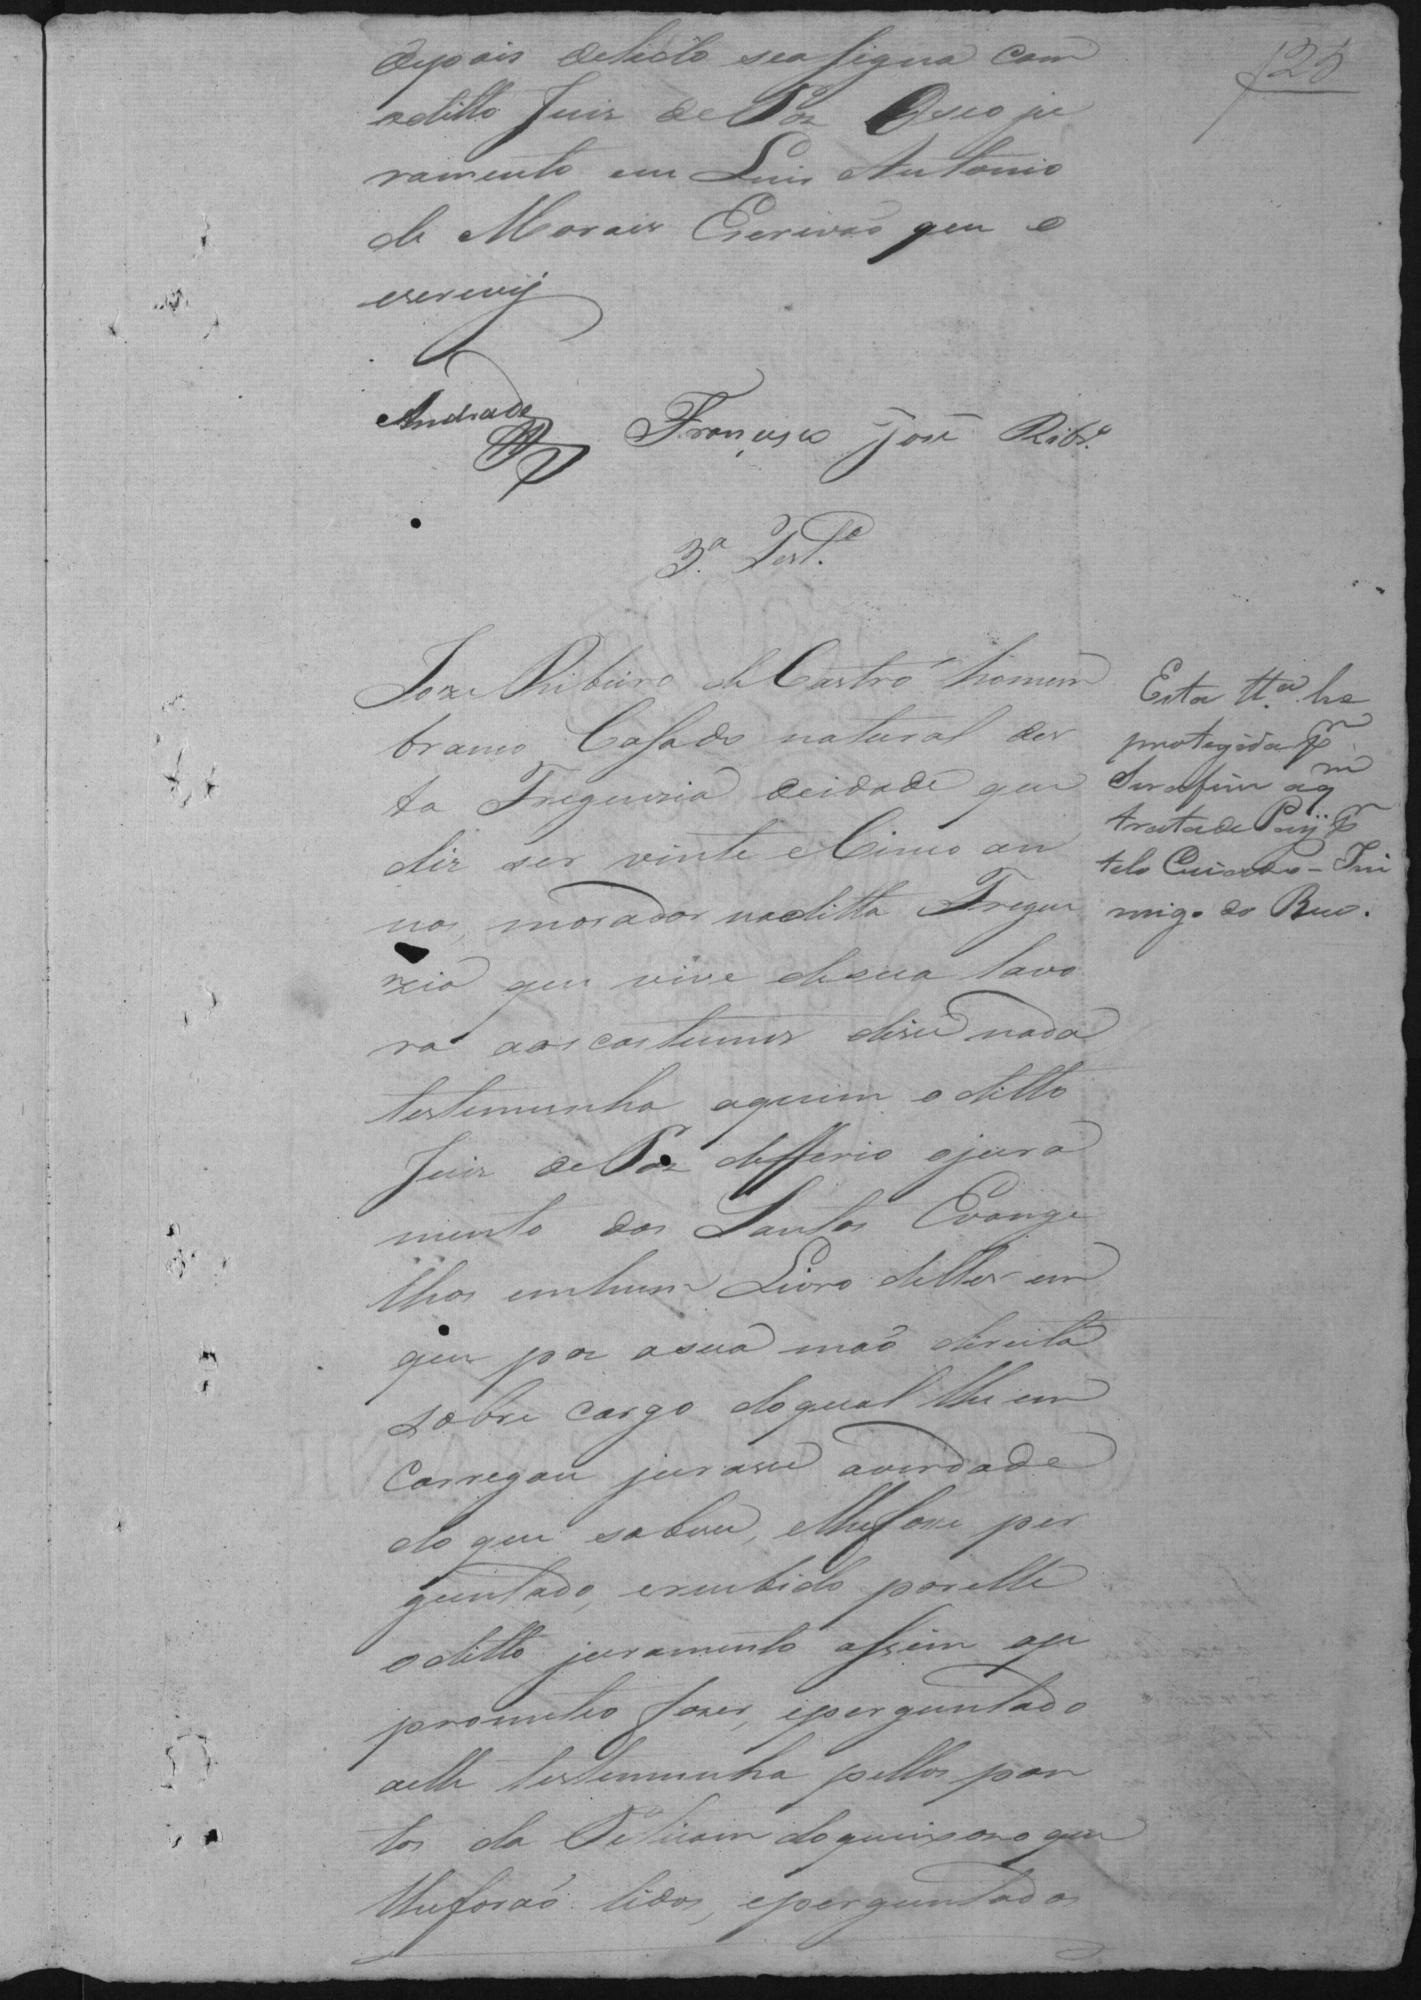 125
depois delido seo signa com
oditto Juiz de Paz Oseo ju
ramento eu Luis Antonio
de Morais Escrivaõ que o
escrevij
Andrade Francisco José Ribr.º
3.ª Test.e
Joze Ribeiro de Castro homem
branco Casado natural des
ta Freguezia deidade que
diz ser vinte eCinco an
nos, morador naditta Fregue
zia que vive desua lavo
ra aos costumes disse nada
testemunha aquem oditto
Juiz de Paz defferio ojura
mento dos Santos Evange
lhos emhum Livro delles em
que poz asua maõ direita
sobre cargo doqual lhe en
carregou jurasse averdade
do que soubece, elhefosse per
guntado, erecebido porelle
oditto juramento assim o
prometeo fazer, eperguntado
aelle testemunha pellos pon
tos da Peticam doqueixozo que
lheforaõ lidos, eperguntados
Esta tt.ª he
protegida pr
Serafim aqm
tratade Paij pr
telo Criado - Ini
migo do Reo.